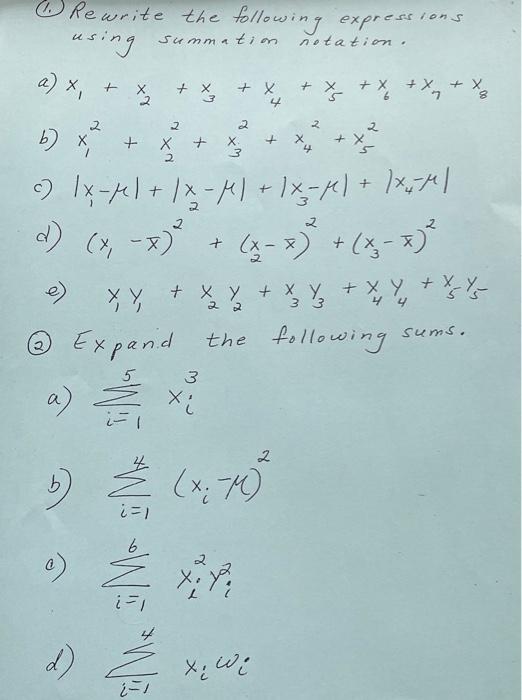 ① Rewrite the following expressions
using summation notation.
a) x₁ + x₂ + x₃ + x₄ + x₅ + x₆ + x₇ + x₈
b) x₁² + x₂² + x₃² + x₄² + x₅²
c) |x₁-μ| + |x₂-μ| + |x₃-μ| + |x₄-μ|
d) (x₁ - x̄)² + (x₂ - x̄)² + (x₃ - x̄)²
e) x₁y₁ + x₂y₂ + x₃y₃ + x₄y₄ + x₅y₅
② Expand the following sums.
a) ∑_{i=1}^{5} xᵢ³
b) ∑_{i=1}^{4} (xᵢ-μ)²
c) ∑_{i=1}^{6} xᵢ² yᵢ²
d) ∑_{i=1}^{4} xᵢ wᵢ